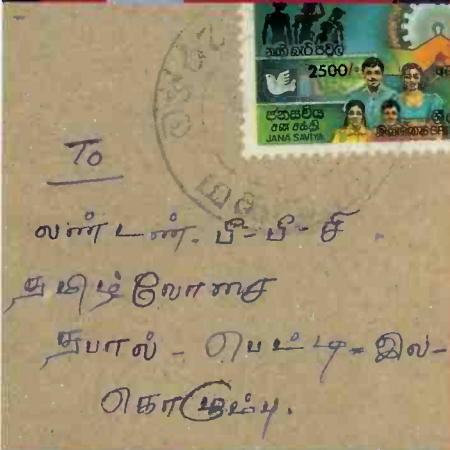 නැගී බැරි පවුල්
2500/=
ජනසවිය
சன சக்தி
JANA SAVIYA
To
லண்டண். பீ-பீ-சி.
தமிழ் லோசை
தபால் - பெட்டி - இல -
கொழும்பு.